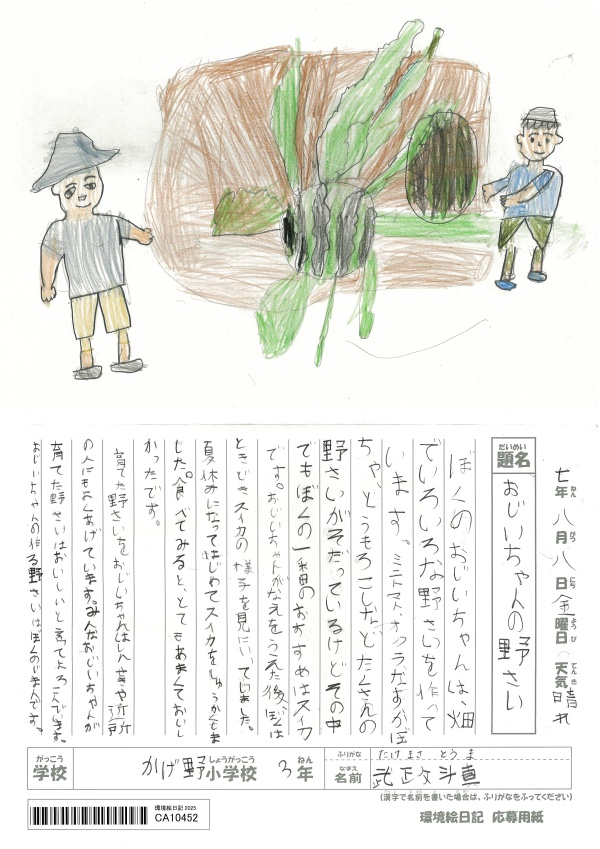 七年八月八日金曜日 天気 晴れ
ねん がつ にち ようび てんき
だいめい
題名 おじいちゃんの野さい
ぼくのおじいちゃんは、畑
でいろいろな野さいを作って
います。ミニトマト、オクラ、なす、かぼ
ちゃ、とうもろこしなどたくさんの
野さいがそだっているけどその中
でもぼくの一番のおすすめはスイカ
です。おじいちゃんがなえをうえた後、ぼくは
ときどきスイカの様子を見にいっていました。
夏休みになってはじめてスイカをしゅうかくしま
した。食べてみると、とてもあまくておいし
かったです。
育てた野さいをおじいちゃんは、人や近所
の人にもよくあげています。みんなおじいちゃんが
育てた野さいはおいしいと言ってよろこんでいます。
おじいちゃんの作る野さいはぼくのじまんです。
がっこう
学校 かげ野小学校 3年
しょうがっこう ねん
ふりがな たけまさ とうま
なまえ
名前 武政斗真
(漢字で名前を書いた場合は、ふりがなをふってください)
環境絵日記 2025
CA10452
環境絵日記 応募用紙